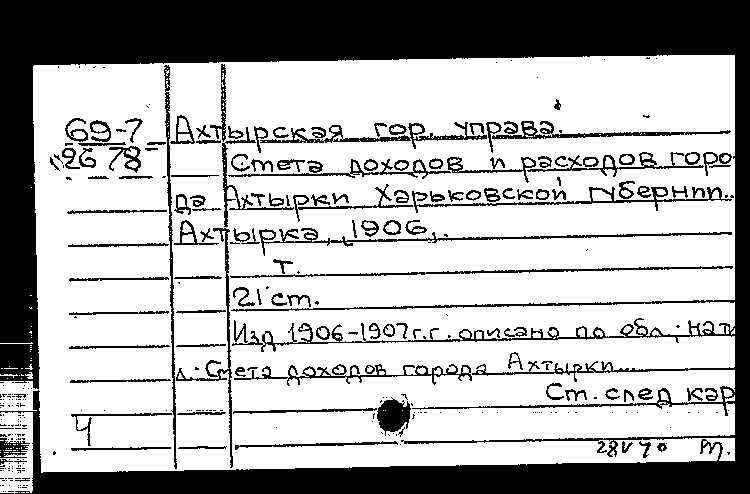 69-7 Ахтырская гор. управа.
2678 Смета доходов и расходов горо-
да Ахтырки Харьковской губернии..
Ахтырка, 1906,.
т.
21 cm.
Изд 1906-1907г.г. описано по обл; на тит
л.: Смета доходов города Ахтырки...
Cm. след кар
Ч
28 V 40 m.